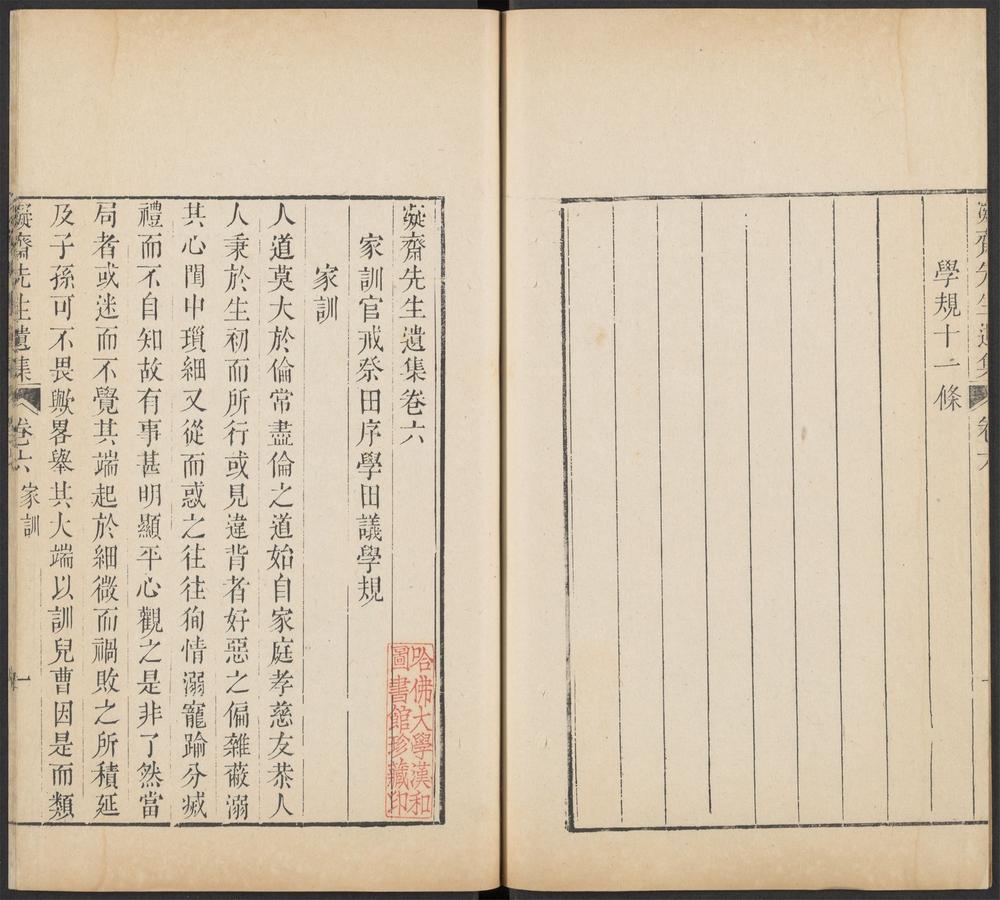 凝齋先生遺集
卷六
學規十一條
凝齋先生遺集卷六
家訓官戒祭田序學田議學規
家訓
人道莫大於倫常盡倫之道始自家庭孝慈友恭人
人秉於生初而所行或見違背者好惡之偏雜蔽溺
其心閨中瑣細又從而惑之往往徇情溺寵踰分烕
禮而不自知故有事甚明顯平心觀之是非了然當
局者或迷而不覺其端起於細微而禍敗之所積延
及子孫可不畏歟畧舉其大端以訓兒曹因是而類
凝齋先生遺集
卷六 家訓
一
哈佛大學漢和
圖書館珍藏印